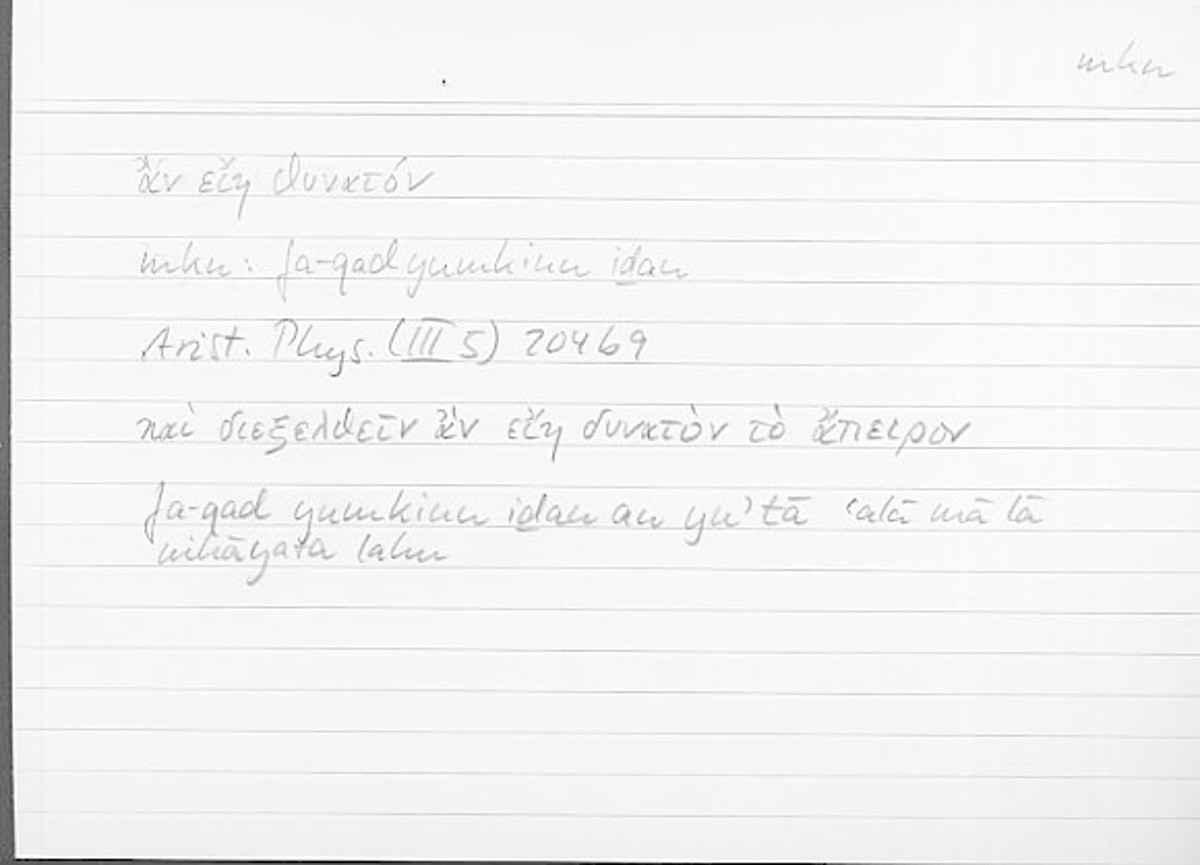 mkn
ἂν εἴη δυνατόν
mkn: fa-qad yumkinu iḏan
Arist. Phys. (III 5) 204b9
καὶ διεξελθεῖν ἂν εἴη δυνατὸν τὸ ἄπειρον
fa-qad yumkinu iḏan an yuʾtā ʿalā mā lā
nihāyata lahu